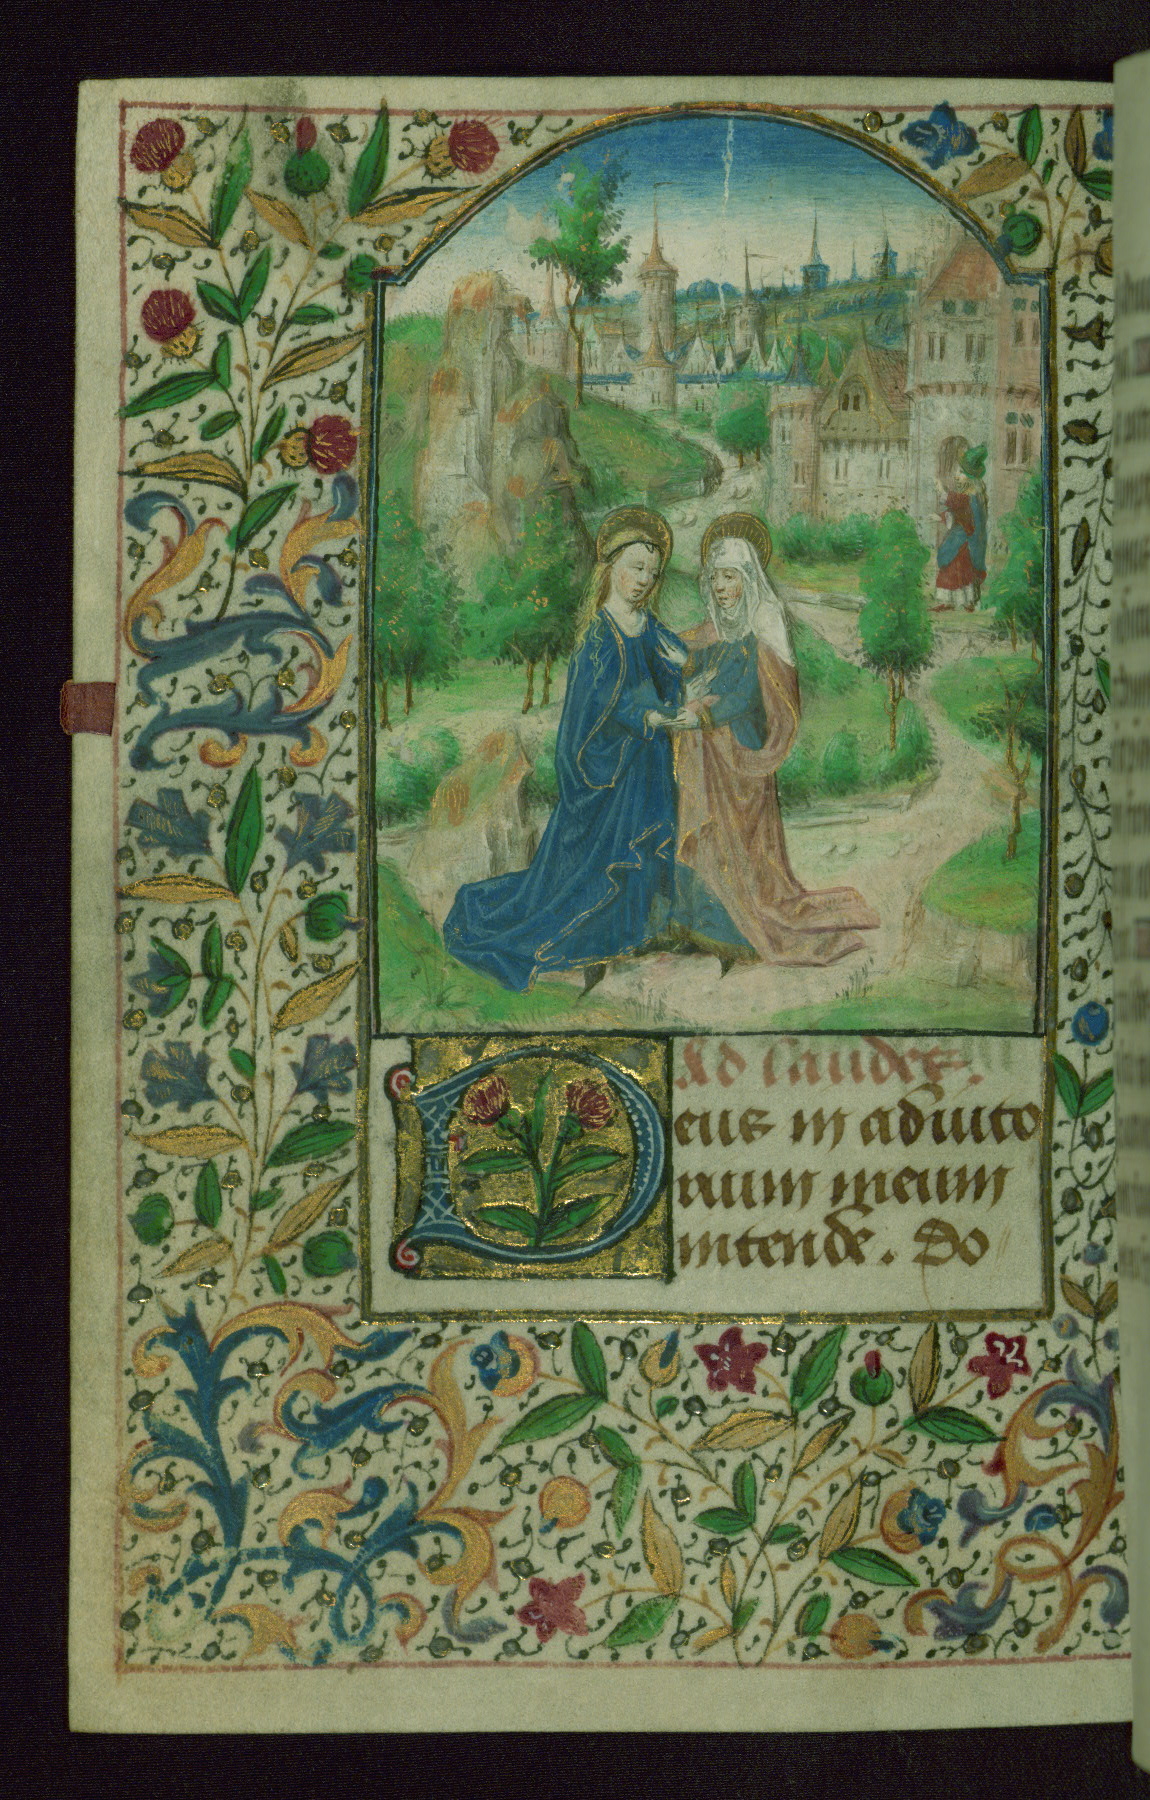 Ad laudes.
Deus in adiuto
rium meum
intende. Do